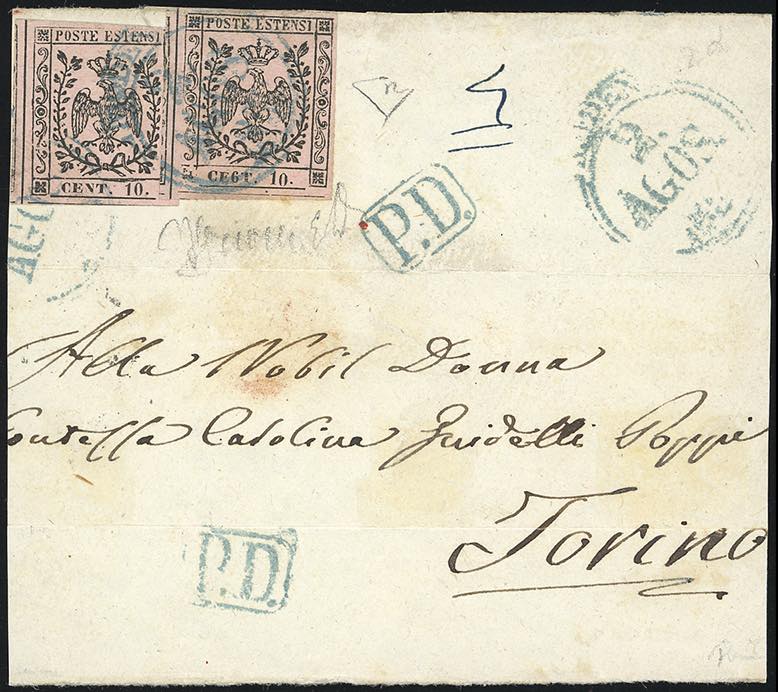 POSTE ESTENSI
CENT. 10.
POSTE ESTENSI
CEGT. 10.
P.D.
2.
AGOS
AGO
Alla Nobil Donna
Contessa Carolina Guidelli Poppi
Torino
P.D.